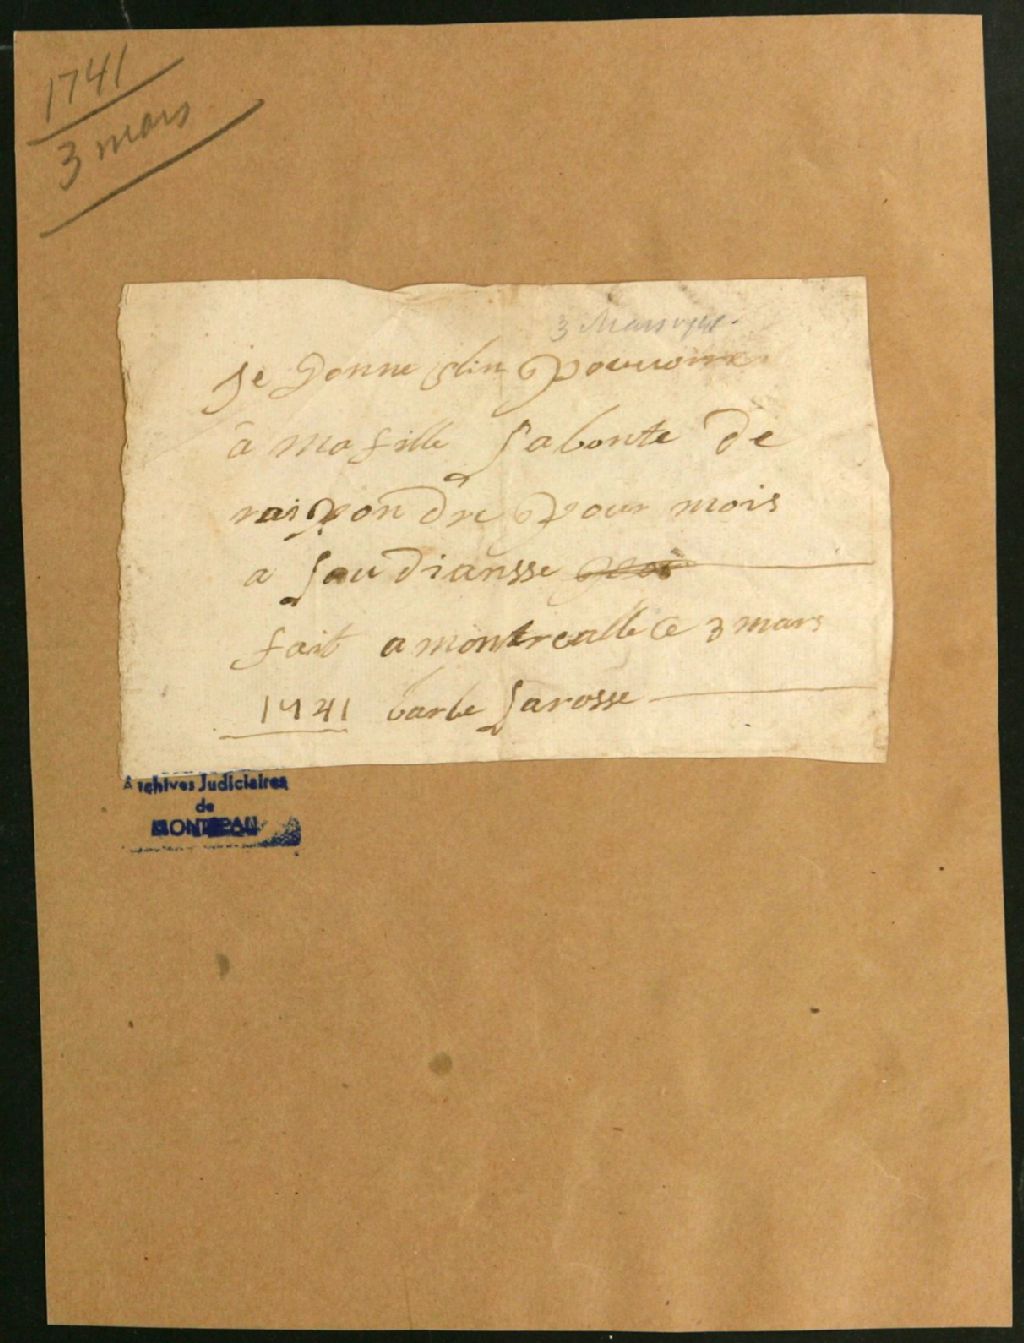 1741
3 mars
3 Mars 1741.
je donne plin pouuoire
a ma fille labonte de
raispondre pour mois
a laudiansse
fait a montrealle ce 3 mars
1741 barbe larosse
Archives Judiciaires
de
MONTREAL